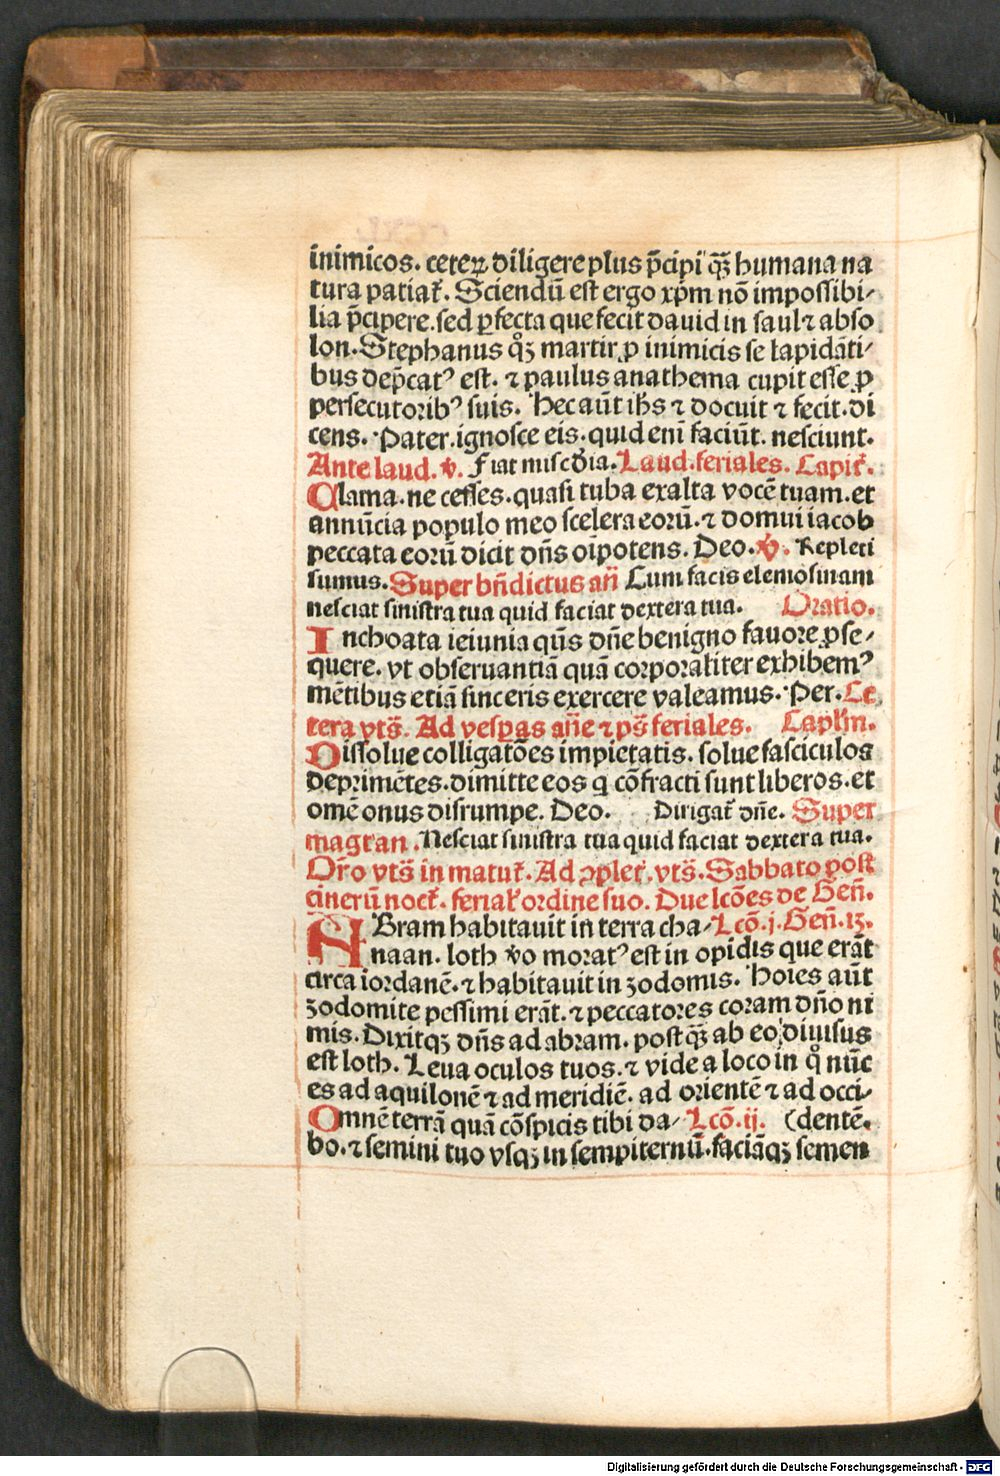 inimicos. ceteꝝ diligere plus p̄cipi qꝫ humana na
tura patiat᷑. Sciendū est ergo xp̄m nō impossibi⸗
lia p̄cipere. sed ꝑfecta que fecit dauid in saul ⁊ abso
lon. Stephanus qͦꝫ martir ꝓ inimicis se lapidāti⸗
bus dep̄catꝰ est. ⁊ paulus anathema cupit esse ꝓ
persecutoribꝰ suis. Hec aūt ihs̄ ⁊ docuit ⁊ fecit. di
cens. Pater. ignosce eis. quid enī faciūt. nesciunt.
Ante laud. v̄. Fiat misc̄dia. Laud. feriales. Capit᷑.
Clama. ne cesses. quasi tuba exalta vocē tuam. et
annūcia populo meo scelera eorū. ⁊ domui iacob
peccata eorū dicit dn̄s oīpotens. Deo. v̄. Repleti
sumus. Super bn̄dictus an̄ Cum facis elemosinam
nesciat sinistra tua quid faciat dextera tua. Oratio.
Inchoata ieiunia qūs dn̄e benigno fauore ꝓse⸗
quere. vt obseruantiā quā corporaliter exhibemꝰ
mētibus etiā sinceris exercere valeamus. Per. Ce
tera vts̄. Ad vesꝑas an̄e ⁊ ps̄ feriales. Capl̄m.
Dissolue colligatōes impietatis. solue fasciculos
deprimētes. dimitte eos q cōfracti sunt liberos. et
omē onus disrumpe. Deo. Dirigat᷑ dn̄e. Super
mag̅t an̄. Nesciat sinistra tua quid faciat dextera tua.
Or̄o vts̄ in matut᷑. Ad ꝯplet᷑. vts̄. Sabbato post
cinerū noct᷑. ferial᷑ ordine suo. Due lc̄ōes de Gen̄.
ABram habitauit in terra cha⸗ Lcō. j. Gen̄. 13.
naan. loth v̄o moratꝰ est in opidis que erāt
circa iordanē. ⁊ habitauit in zodomis. Hoīes aūt
zodomite pessimi erāt. ⁊ peccatores coram dn̄o ni
mis. Dixitqꝫ dn̄s ad abram. postqꝫ ab eo diuisus
est loth. Leua oculos tuos. ⁊ vide a loco in qͦ nūc
es ad aquilonē ⁊ ad meridiē. ad orientē ⁊ ad occi⸗
Omnē terrā quā cōspicis tibi da⸗ Lcō. ij. (dentē.
bo. ⁊ semini tuo vsqꝫ in sempiternū. faciāqꝫ semen
Digitalisierung gefördert durch die Deutsche Forschungsgemeinschaft - DFG